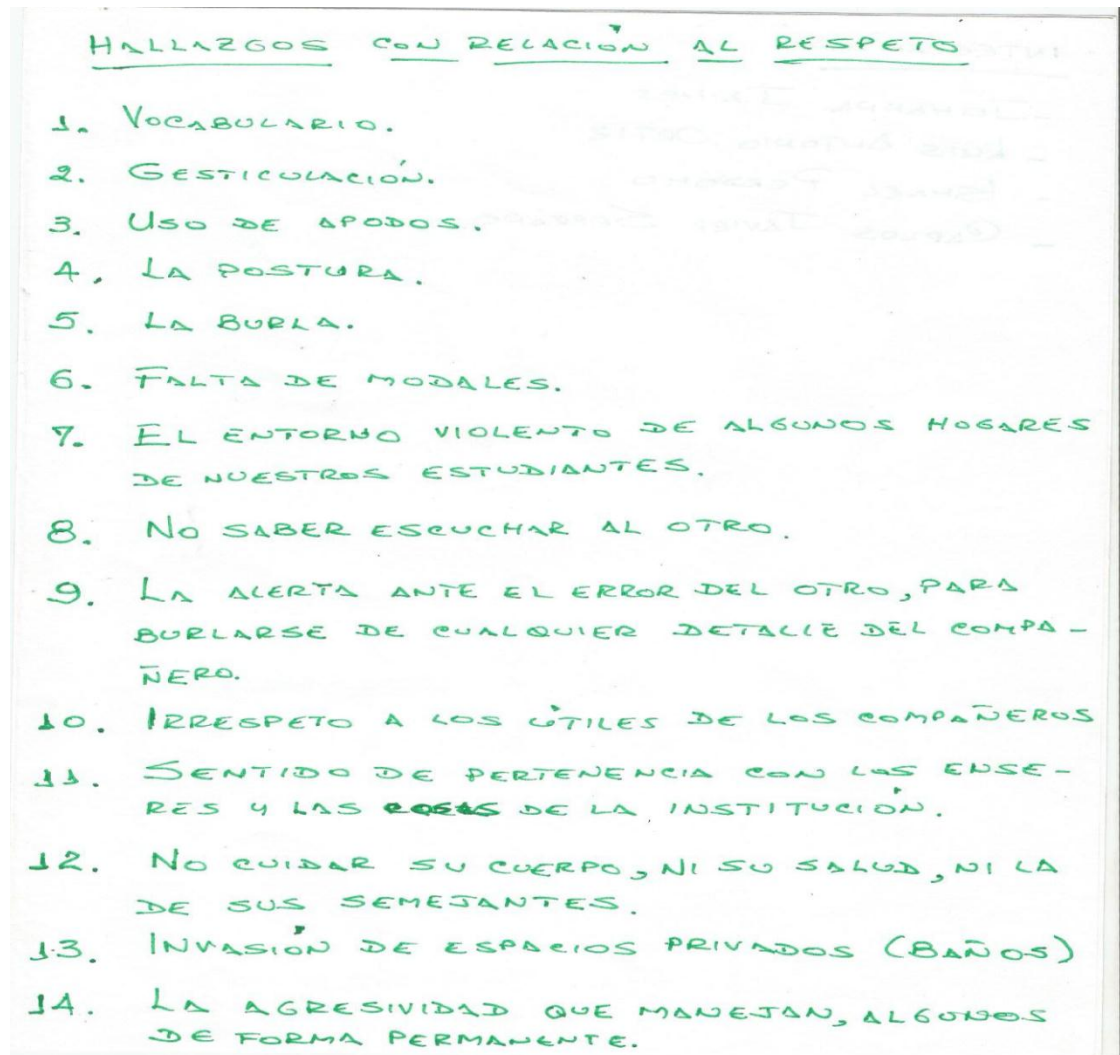 HALLAZGOS CON RELACIÓN AL RESPETO
1. VOCABULARIO.
2. GESTICULACIÓN.
3. USO DE APODOS.
4. LA POSTURA.
5. LA BURLA.
6. FALTA DE MODALES.
7. EL ENTORNO VIOLENTO DE ALGUNOS HOGARES
DE NUESTROS ESTUDIANTES.
8. NO SABER ESCUCHAR AL OTRO.
9. LA ALERTA ANTE EL ERROR DEL OTRO, PARA
BURLARSE DE CUALQUIER DETALLE DEL COMPA-
ÑERO.
10. IRRESPETO A LOS ÚTILES DE LOS COMPAÑEROS
11. SENTIDO DE PERTENENCIA CON LOS ENSE-
RES Y LAS COSAS DE LA INSTITUCIÓN.
12. NO CUIDAR SU CUERPO, NI SU SALUD, NI LA
DE SUS SEMEJANTES.
13. INVASIÓN DE ESPACIOS PRIVADOS (BAÑOS)
14. LA AGRESIVIDAD QUE MANEJAN, ALGUNOS
DE FORMA PERMANENTE.